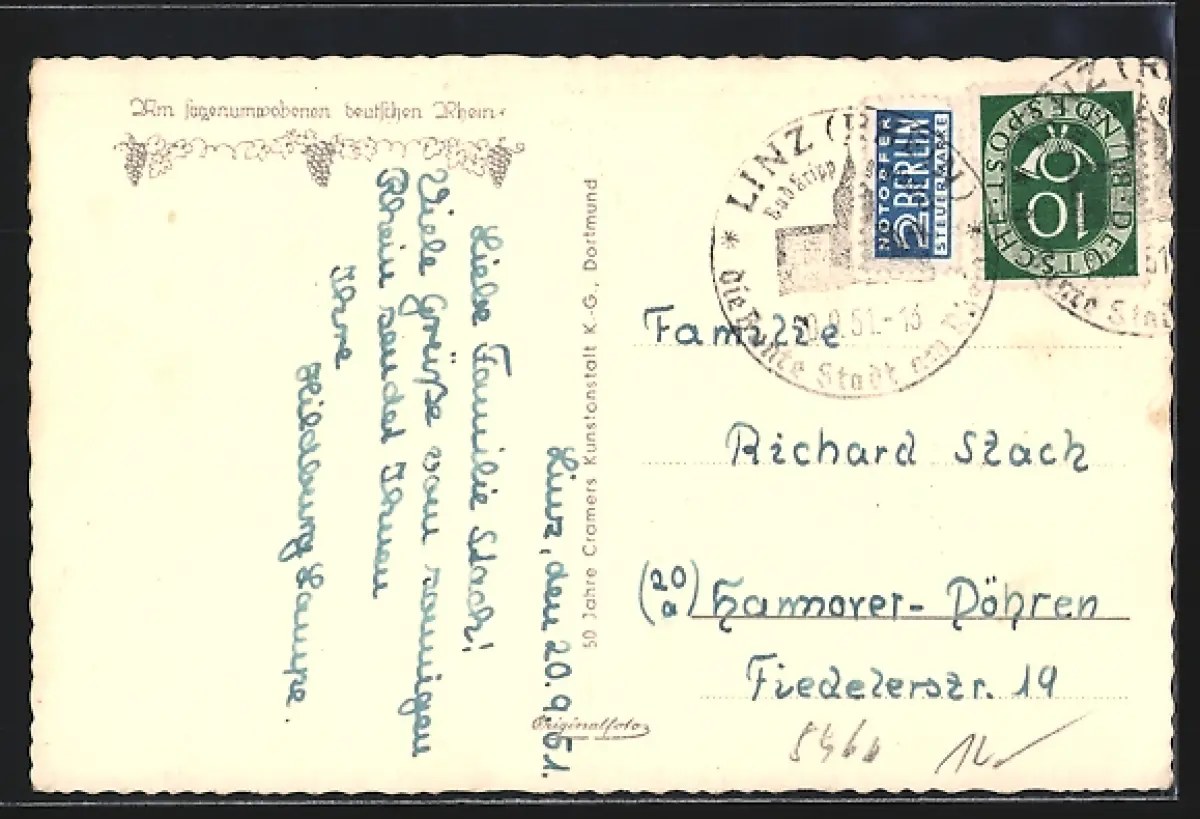 Am sagenumwobenen deutschen Rhein
Linz, den 20.9.51.
Liebe Familie Stach!
Viele Grüße vom sonnigen
Rhein sendet Ihnen
Ihre
Hildburg Lampe.
50 Jahre Cramers Kunstanstalt K.-G., Dortmund
Originalfoto
LINZ (RHEIN)
Bad Kripp
20.9.51.-13
Die Bunte Stadt am Rhein
NOTOPFER
2 BERLIN
STEUERMARKE
DEUTSCHE BUNDESPOST
10
LINZ (R
51
Bunte Stad
Familie
Richard Stach
(20a) Hannover-Döhren
Fiedelerstr. 19